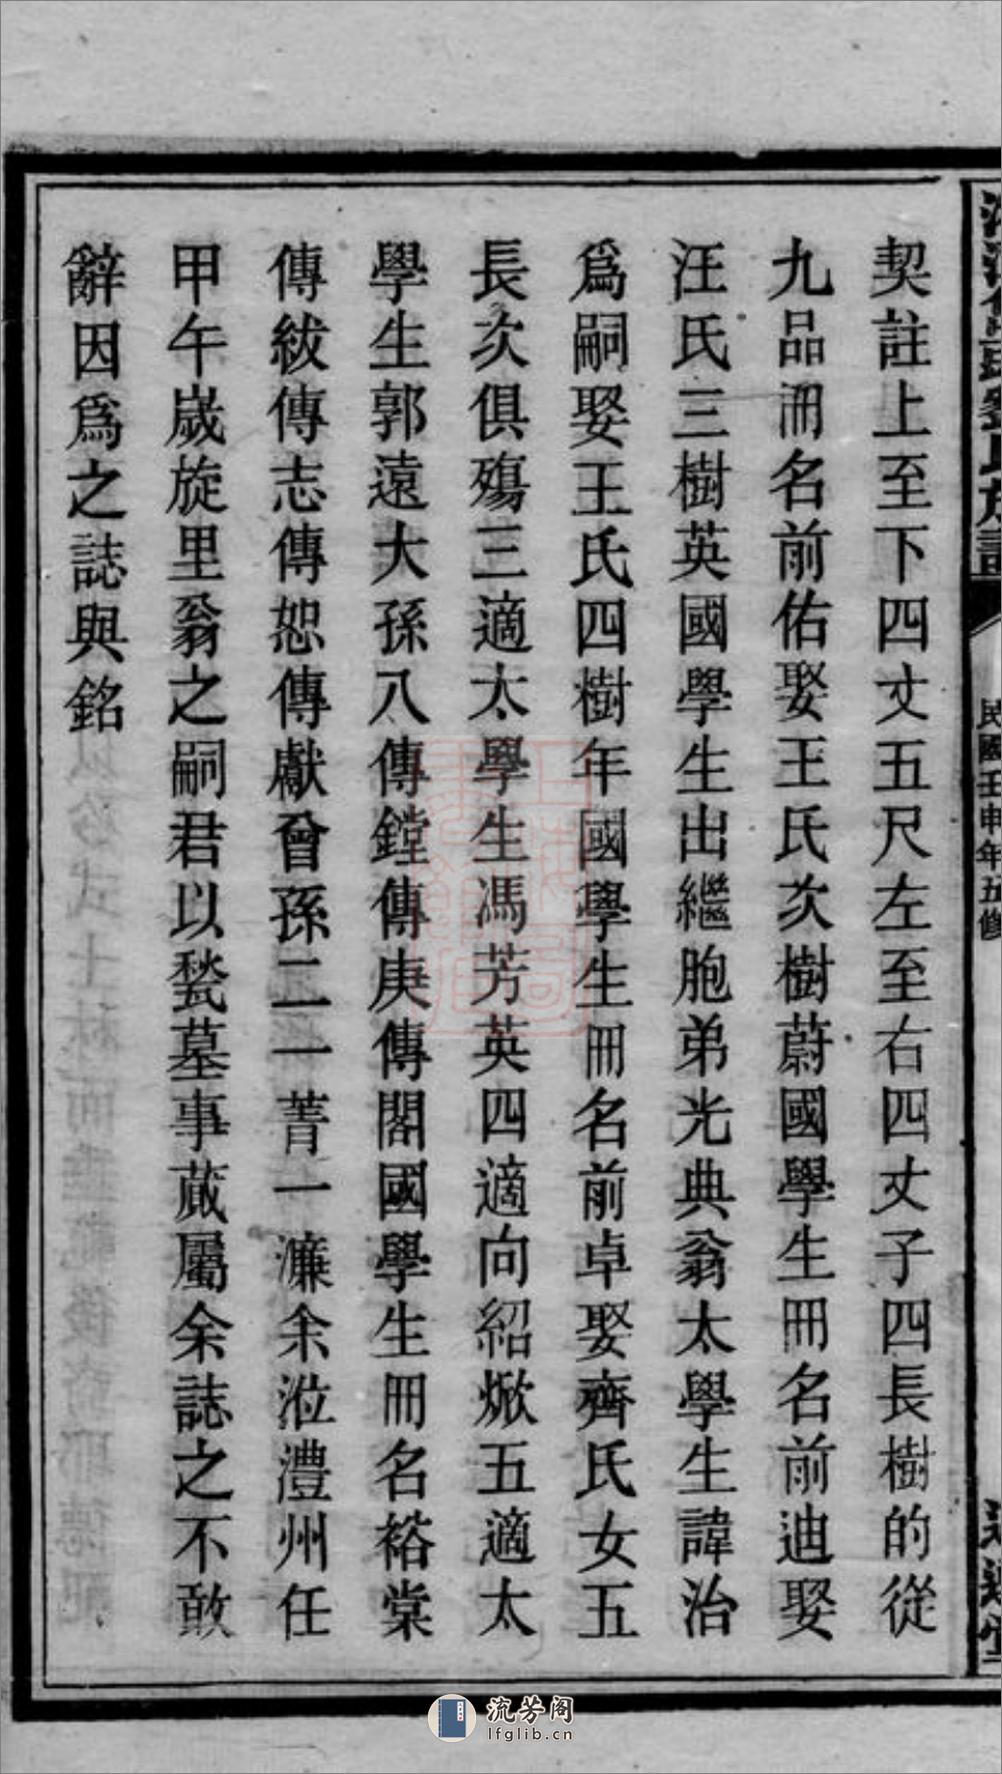 契註上至下四丈五尺左至右四丈子四長樹的從
九品冊名前佑娶王氏次樹蔚國學生冊名前迪娶
汪氏三樹英國學生出繼胞弟光典翁太學生諱治
爲嗣娶王氏四樹年國學生冊名前卓娶齊氏女五
長次俱殤三適太學生馮芳英四適向紹焮五適太
學生郭遠大孫八傳鏜傳庚傳閣國學生冊名裕棠
傳紱傳志傳恕傳獻曾孫二一菁一濂余涖澧州任
甲午歲旋里翁之嗣君以甃墓事蕆屬余誌之不敢
辭因爲之誌與銘
民國壬申年五修
流芳阁
lfglib.cn